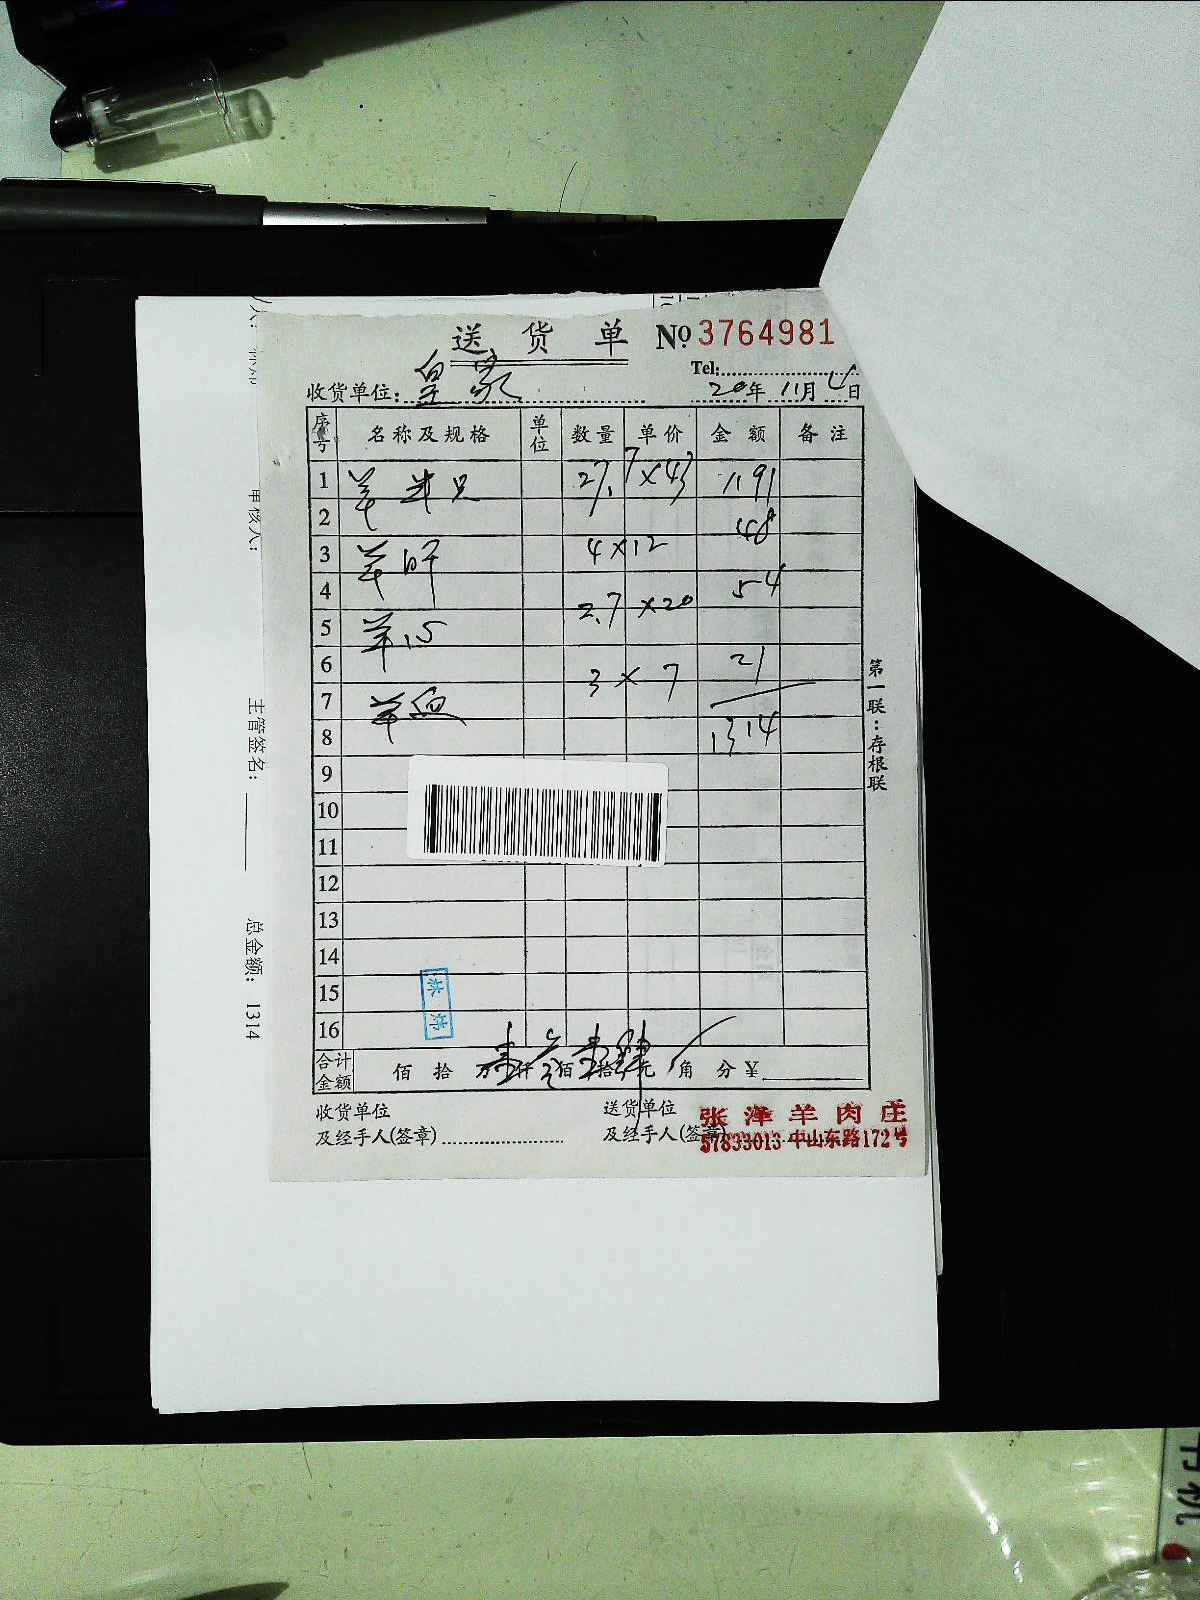 送 货 单 № 3764981
Tel:
收货单位: 皇家 20年 11月 4日
序号 名称及规格 单位 数量 单价 金额 备注
1 羊半只 27.7×43 1191
2
3 羊肝 4×12 48
4
5 羊心 2.7×20 54
6
7 羊血 3×7 21
8 1314
9
10
11
12
13
14
15
16
合计金额 佰 拾 万 壹仟 叁佰 壹拾 肆元 角 分 ¥
收货单位 送货单位
及经手人(签章) 及经手人(签章)
张泽羊肉庄
57833013 中山东路172号
第一联:存根联
甲核人:
主管签名:
总金额: 1314